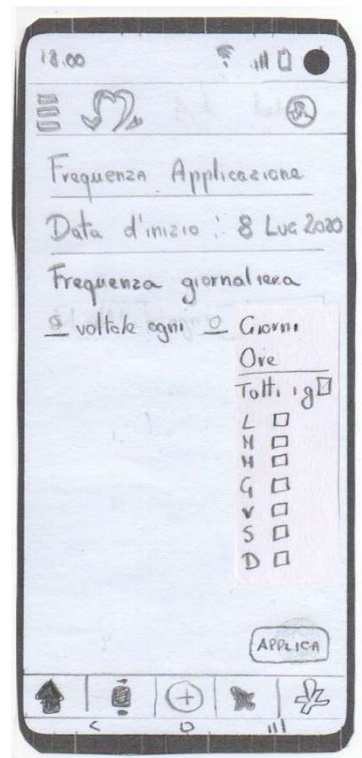 18.00
Frequenza Applicazione
Data d'inizio : 8 LUG 2020
Frequenza giornaliera
0 volta/e ogni 0 Giorni
Ore
Tutti i g
L
M
M
G
V
S
D
APPLICA